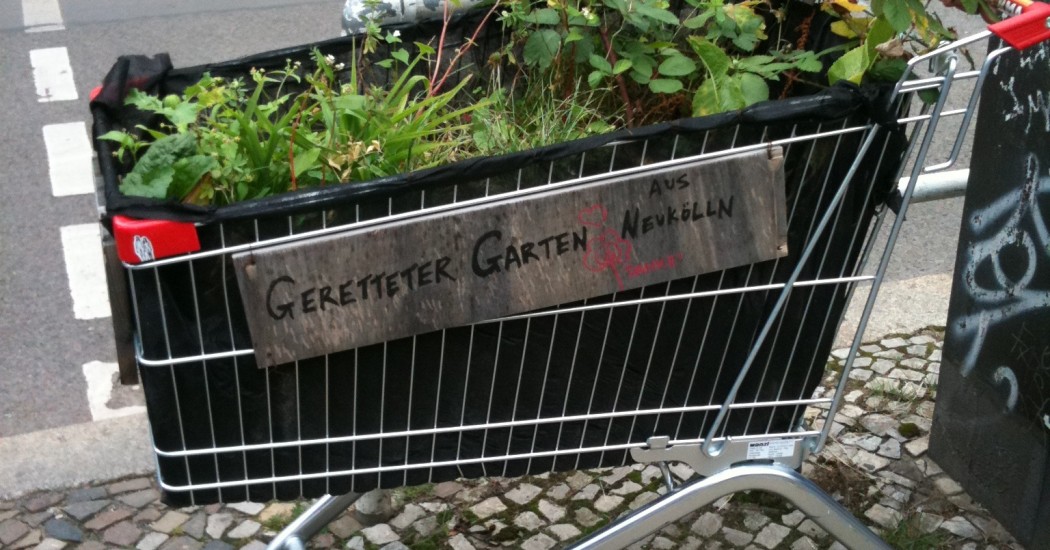 GERETTETER GARTEN AUS NEUKÖLLN